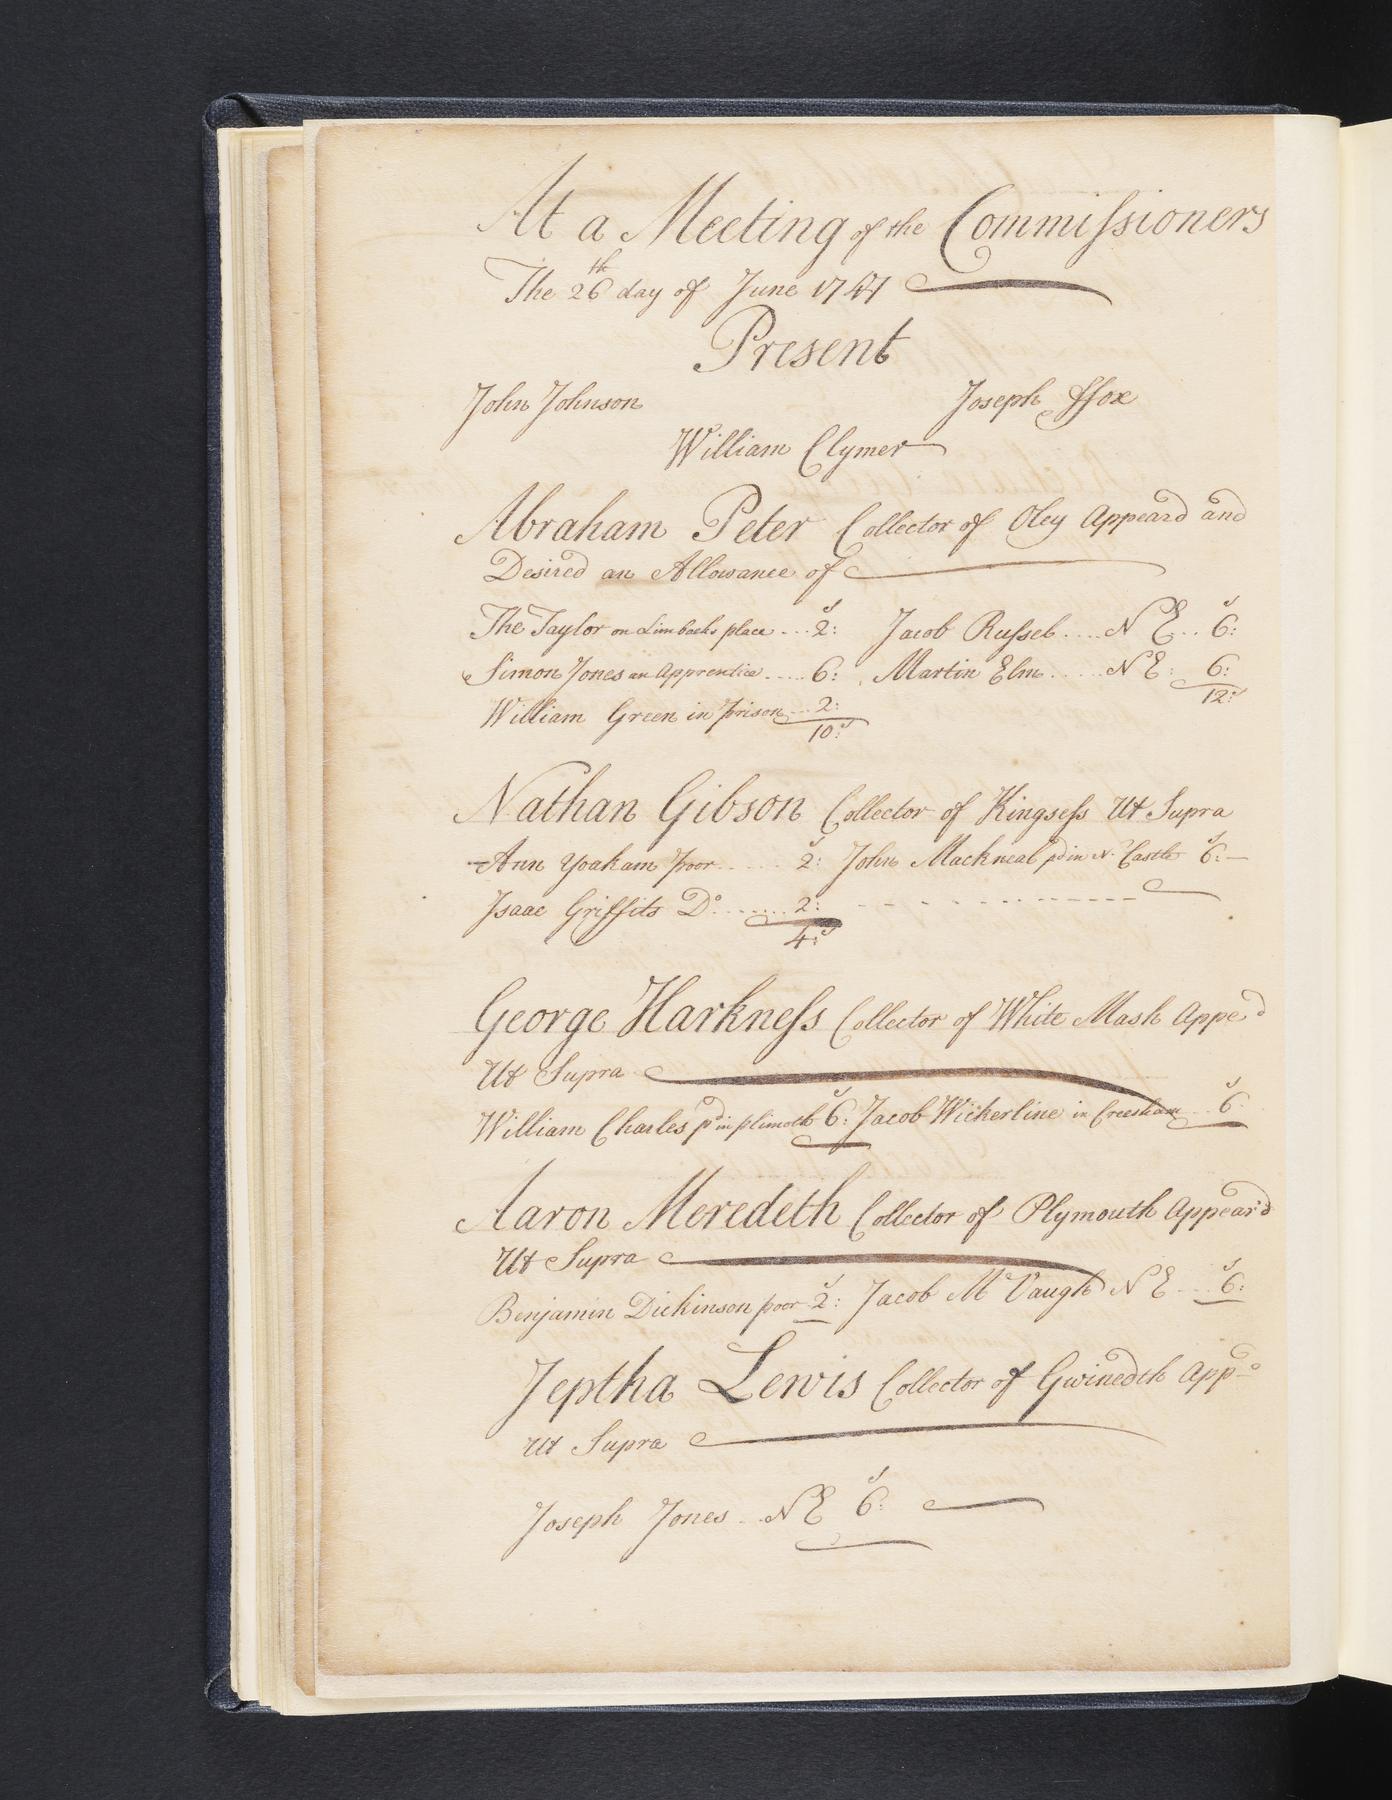 At a Meeting of the Commissioners
The 26th day of June 1747
Present
John Johnson Joseph ffox
William Clymer
Abraham Peter Collector of Oley Appeard and
Desired an Allowance of
The Taylor on Limbacks place ... 2: s Jacob Russel .... N E .. 6: s
Simon Jones an Apprentice .... 6: Martin Elm ..... N E : 6:
12: s
William Green in prison ... 2:
10: s
Nathan Gibson Collector of Kingsess Ut Supra
Ann Yoakam poor ...... 2: s John Mackneal pd in N. Castle 6: s
Isaac Griffits Do ....... 2:
4: s
George Harkness Collector of White Mash Appe d
Ut Supra
William Charles pd in plimoth 6: s Jacob Wickerline in Creesham ... 6 s
Aaron Meredeth Collector of Plymouth Appear'd
Ut Supra
Benjamin Dickinson poor 2: s Jacob Mc Vaugh N E ... 6: s
Jeptha Lewis Collector of Gwinedth Appd
Ut Supra
Joseph Jones .. N E 6: s